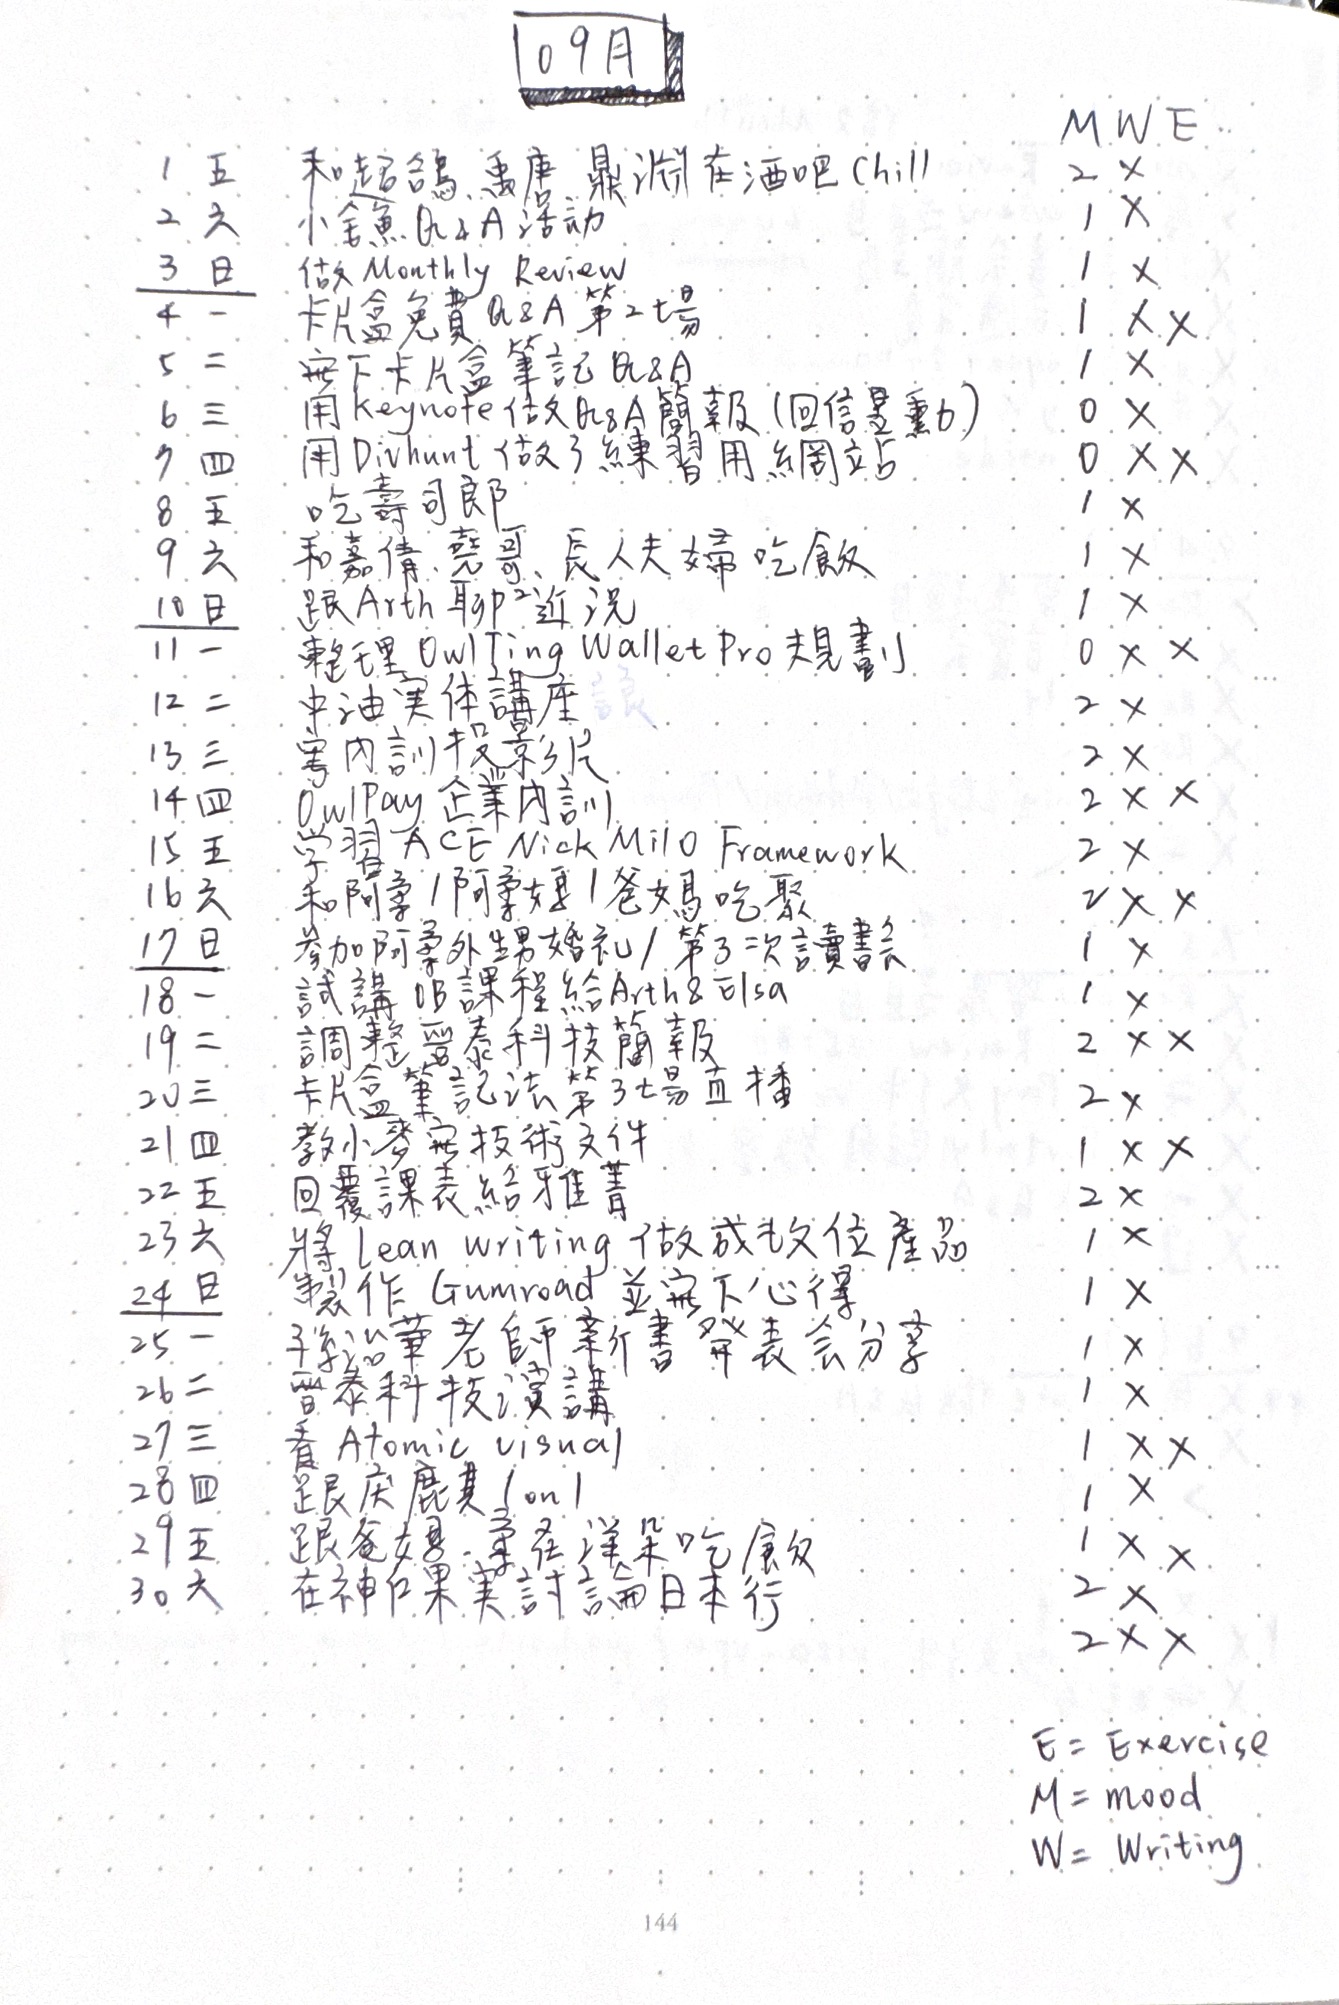 09月
M W E
1 五 和超鴿、禹唐、鼎淵在酒吧Chill 2 X
2 六 小金魚Q&A活動 1 X
3 日 做Monthly Review 1 X
4 一 卡片盒免費Q&A第2場 1 X X
5 二 寫下卡片盒筆記Q&A 1 X
6 三 用keynote做Q&A簡報(回信量動) 0 X
7 四 用Divhunt做了練習用網站 0 X X
8 五 吃壽司郎 1 X
9 六 和嘉倩、堯哥、長人夫婦吃飯 1 X
10 日 跟Arth聊p²近況 1 X
11 一 整理OwlTing Wallet Pro規劃 0 X X
12 二 中油実体講座 2 X
13 三 寄內訓投影片 2 X
14 四 OwlPay企業內訓 2 X X
15 五 学習ACE Nick Milo Framework 2 X
16 六 和阿摩/阿摩媽/爸媽吃聚 2 X X
17 日 参加阿摩外甥婚礼/第3次讀書会 1 X
18 一 試講OB課程給Arth&Elsa 1 X
19 二 調整晋泰科技簡報 2 X X
20 三 卡片盒筆記法第3場直播 2 X
21 四 教小麥寫技術文件 1 X X
22 五 回覆課表給雅菁 2 X
23 六 將Lean writing做成数位產品 1 X
24 日 製作Gumroad並寫下心得 1 X
25 一 孫治華老師新書發表会分享 1 X
26 二 晋泰科技演講 1 X
27 三 看Atomic visual 1 X X
28 四 跟庆鹿其1on1 1 X
29 五 跟爸媽、在洋朵吃飯 1 X X
30 六 在神仁果実討論日本行 2 X
2 X X
E= Exercise
M= mood
W= Writing
144